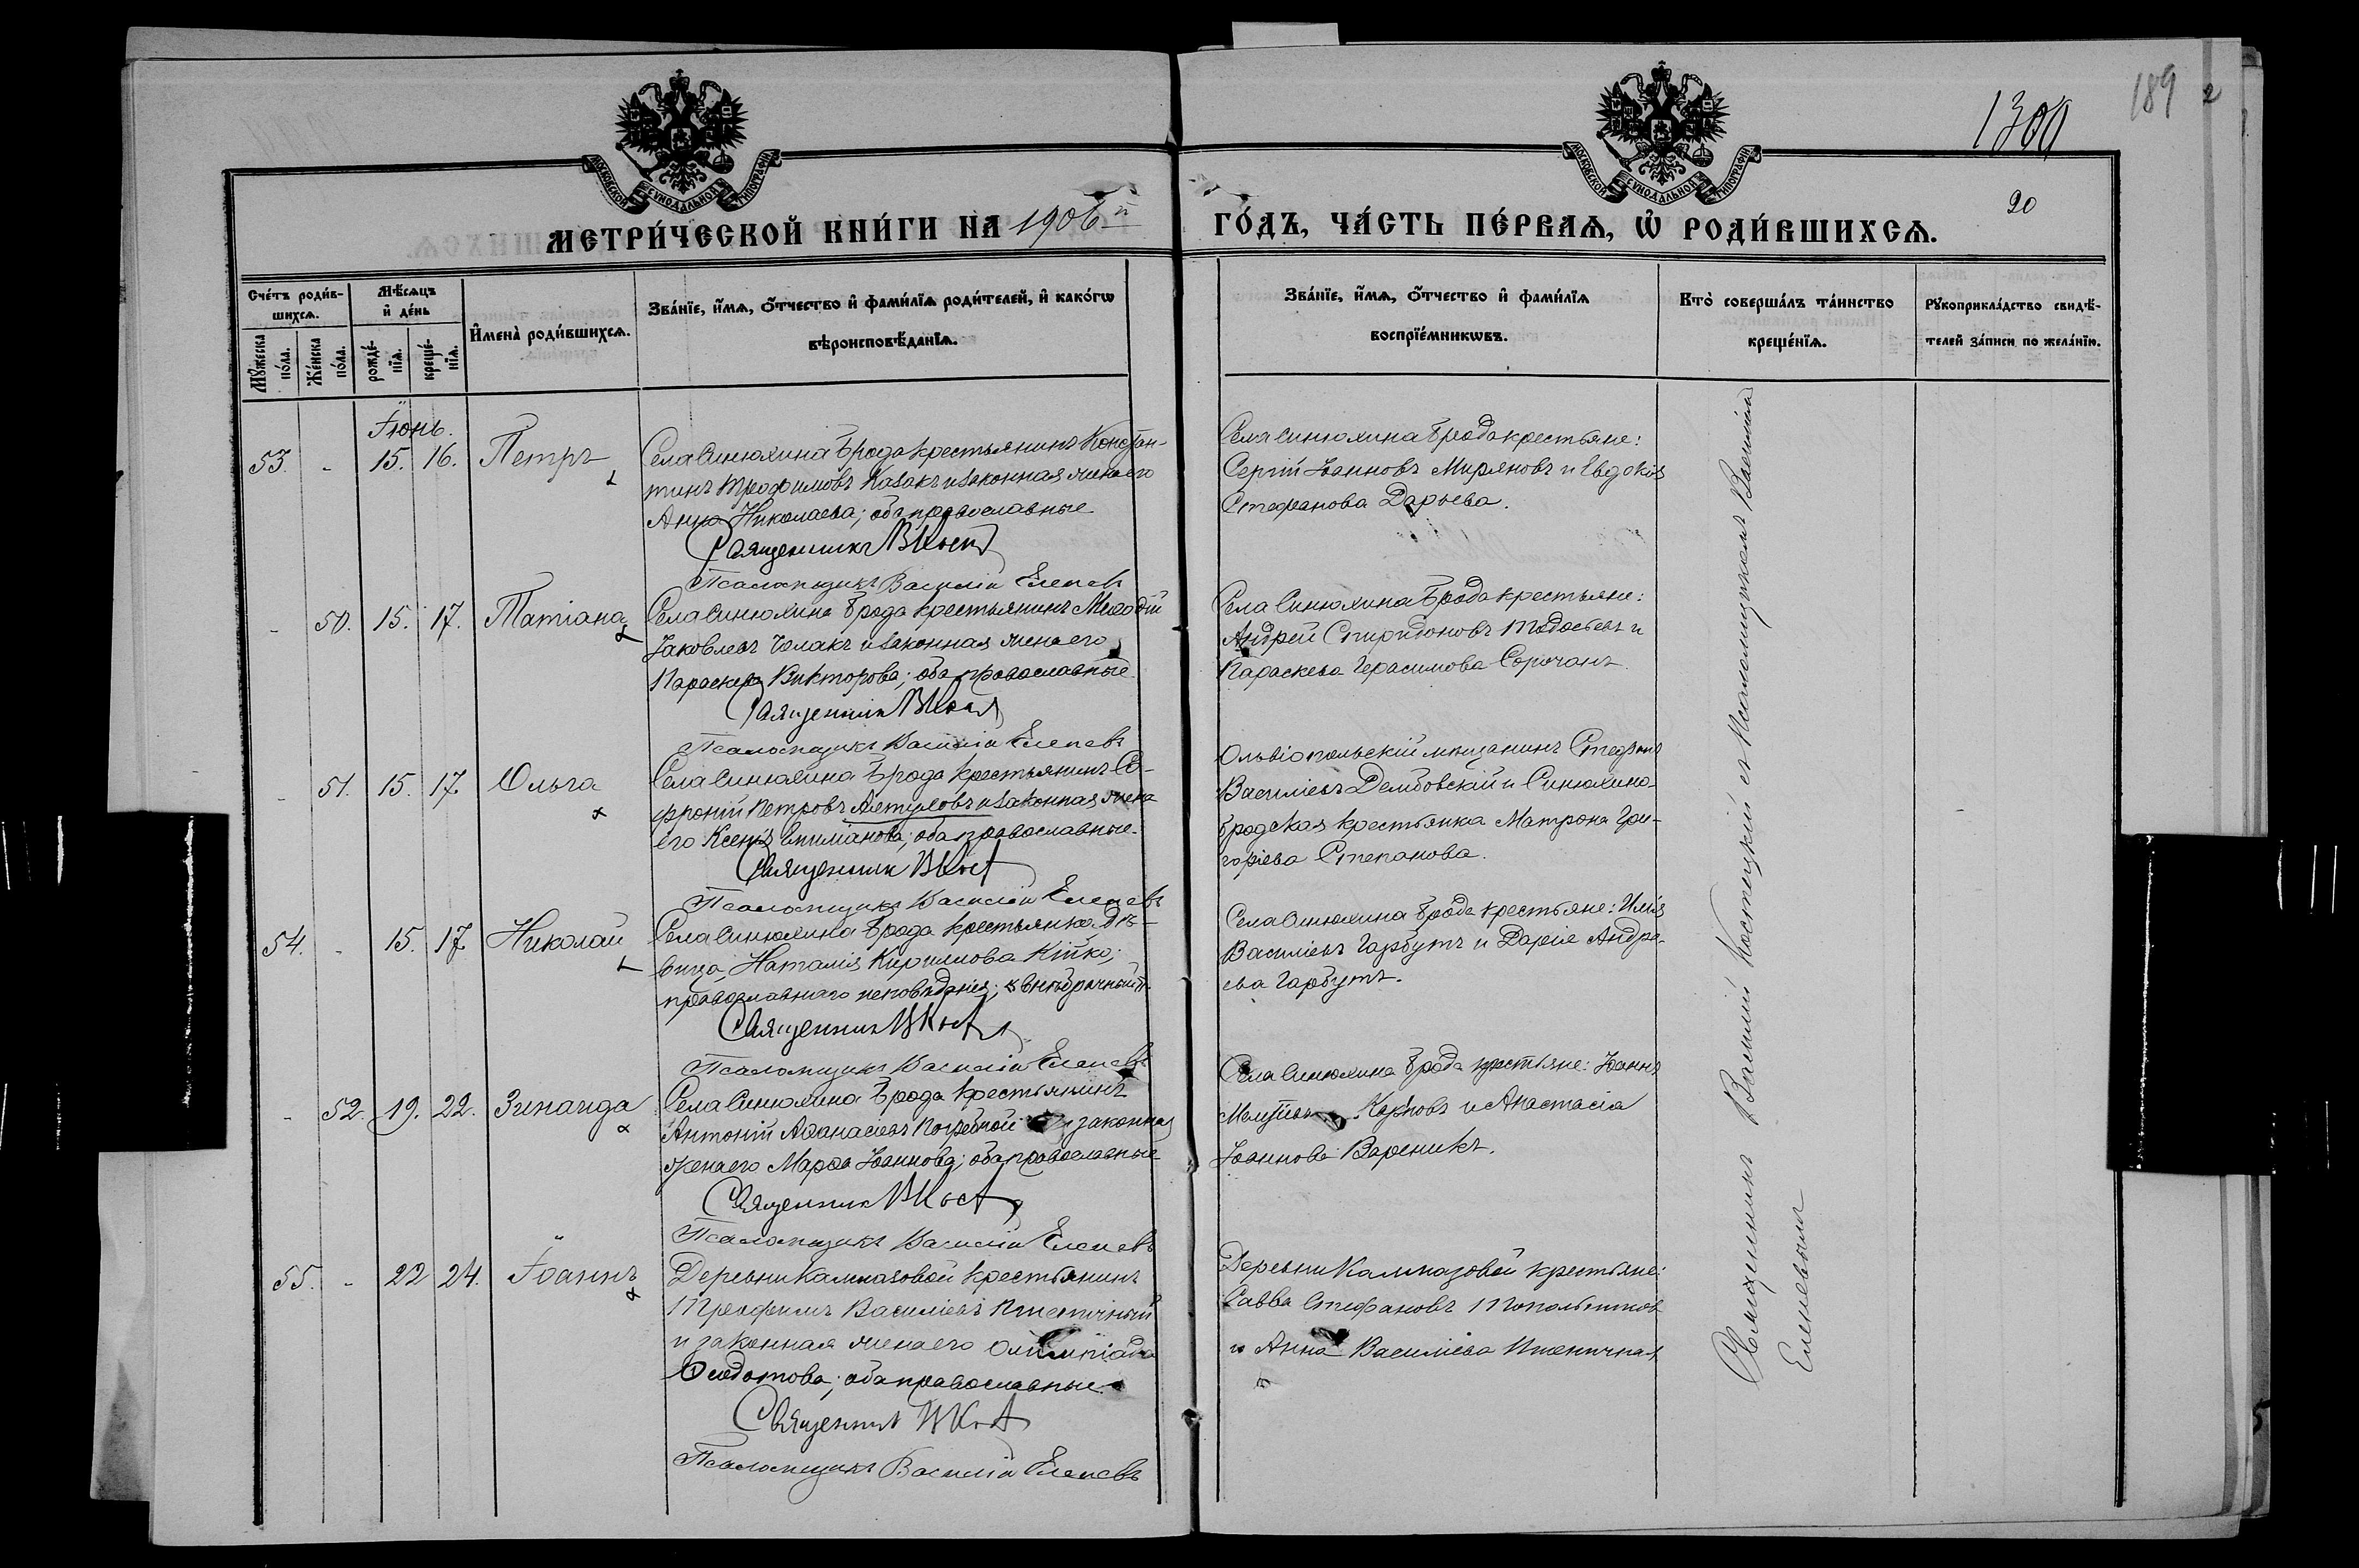 189
2
1300
20
МОСКОВСКОЙ СѴНОДАЛЬНОЙ ТИПОГРАФІИ
МОСКОВСКОЙ СѴНОДАЛЬНОЙ ТИПОГРАФІИ
МЕТРИ́ЧЕСКОЙ КНИ́ГИ НА 1906й ГО́ДЪ, ЧА́СТЬ ПЕ́РВАѦ, Ѡ҆ РОДИ́ВШИХСѦ.
Сче́тъ роди́в-
шихсѧ.
Мꙋ́жеска
по́ла.
Же́нска
по́ла.
Мѣ́сѧцъ
и҆ де́нь
рожде́-
нїѧ.
креще́-
нїѧ.
И҆мена̀ роди́вшихсѧ.
Зва́нїе, и҆́мѧ, ѻ҆́тчество и҆ фами́лїѧ роди́телей, и҆ како́гѡ
вѣроисповѣ́данїѧ.
Зва́нїе, и҆́мѧ, ѻ҆́тчество и҆ фами́лїѧ
воспрїе́мникѡвъ.
Кто̀ соверша́лъ та́инство
креще́нїѧ.
Рꙋкоприкла́дство свидѣ́-
телей за́писи по жела́нїю.
Іюнь.
53. - 15. 16. Петръ
Села Синюхина Брода крестьянинъ Констан-
тинъ Трофимовъ Казакъ и законная жена его
Анна Николаева; оба православные
Священникъ В Кост
Псаломщикъ Василій Еленевъ
Села Синюхина Брода крестьяне:
Сергій Іоанновъ Миряновъ и Евдокія
Стефанова Дарьева.
- 50. 15. 17. Татіана
Села Синюхина Брода крестьянинъ Меѳодій
Іаковлевъ Челакъ и законная жена его
Параскева Викторова; оба православные
Священникъ В Кост
Псаломщикъ Василій Еленевъ
Села Синюхина Брода крестьяне:
Андрей Спиридоновъ Тодосьевъ и
Параскева Герасимова Сорочанъ.
- 51. 15. 17. Ольга
Села Синюхина Брода крестьянинъ Со-
фроній Петровъ и законная жена
его Ксенія оба православные.
Священникъ В Кост
Псаломщикъ Василій Еленевъ
Ольвіопольскій мѣщанинъ Стефанъ
Василіевъ Дембовскій и Синюхино-
бродская крестьянка Матрона Гри-
горіева Степанова.
54. - 15. 17. Николай
Села Синюхина Брода крестьянка дѣ-
вица, Наталія Кириллова Кійко;
православнаго исповѣданія; внѣбрачный.
Священникъ В Кост
Псаломщикъ Василій Еленевъ
Села Синюхина Брода крестьяне: Илія
Василіевъ Гарбутъ и Дарія Андре-
ева Гарбутъ.
- 52. 19. 22. Зинаида
Села Синюхина Брода крестьянинъ
Антоній Аѳанасіевъ и законная
жена его Марѳа Іоаннова; оба православные
Священникъ В Кост
Псаломщикъ Василій Еленевъ
Села Синюхина Брода крестьяне: Іоаннъ
Карповъ и Анастасія
Іоаннова Вареникъ.
55. - 22 24. Іоаннъ
Деревни Калмазовой крестьянинъ
Трофимъ Василіевъ Пшеничный
и законная жена его Олимпіада
Ѳеодотова; оба православные.
Священникъ В Кост
Псаломщикъ Василій Еленевъ
Деревни Калмазовой крестьяне:
Савва Стефановъ
и Анна Василіева Пшеничная
Священникъ Василій Костецкій съ Псаломщикомъ Василіемъ
Еленевымъ